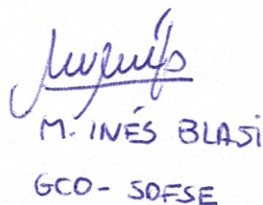 M. INÉS BLASI
GCO - SOFSE